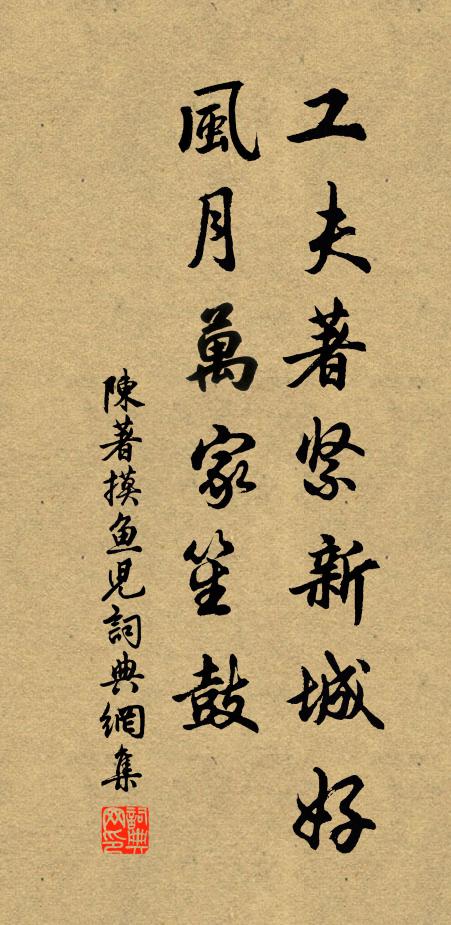 工夫著紧新城好
風月萬家笙鼓
陳著摸鱼児詞典網集
詞典网印